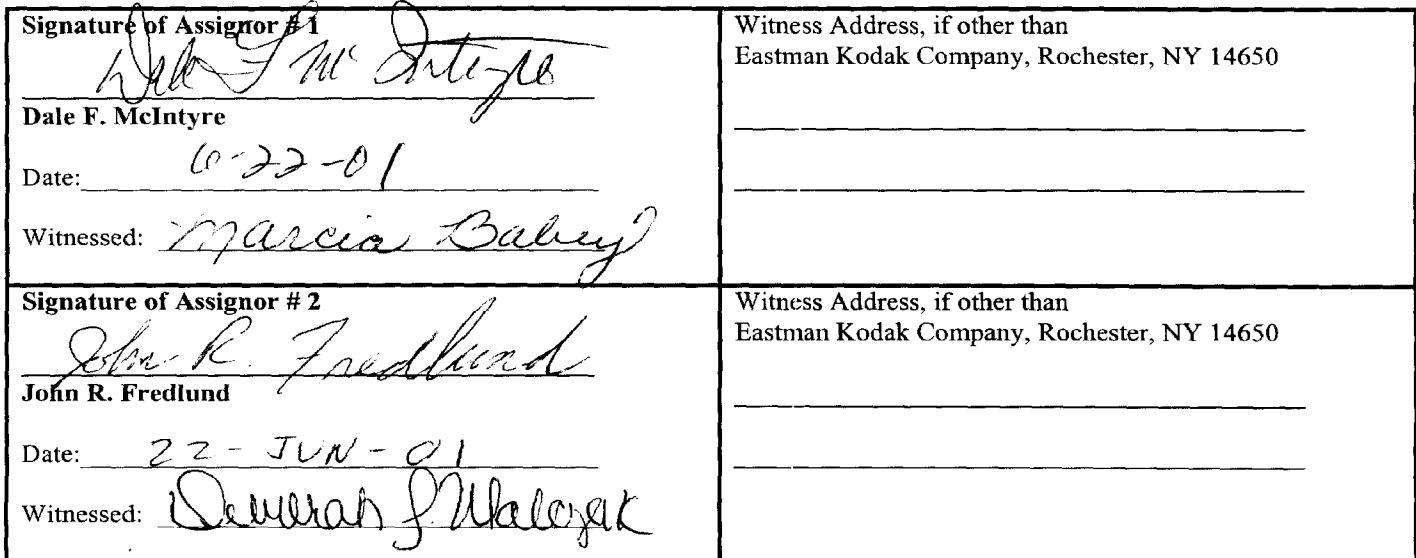 Signature of Assignor # 1
Dale F McIntyre
Dale F. McIntyre
Date: 6-22-01
Witnessed: Marcia Babey
Witness Address, if other than
Eastman Kodak Company, Rochester, NY 14650
Signature of Assignor # 2
John R. Fredlund
John R. Fredlund
Date: 22-JUN-01
Witnessed: Deborah J. Walczak
Witness Address, if other than
Eastman Kodak Company, Rochester, NY 14650